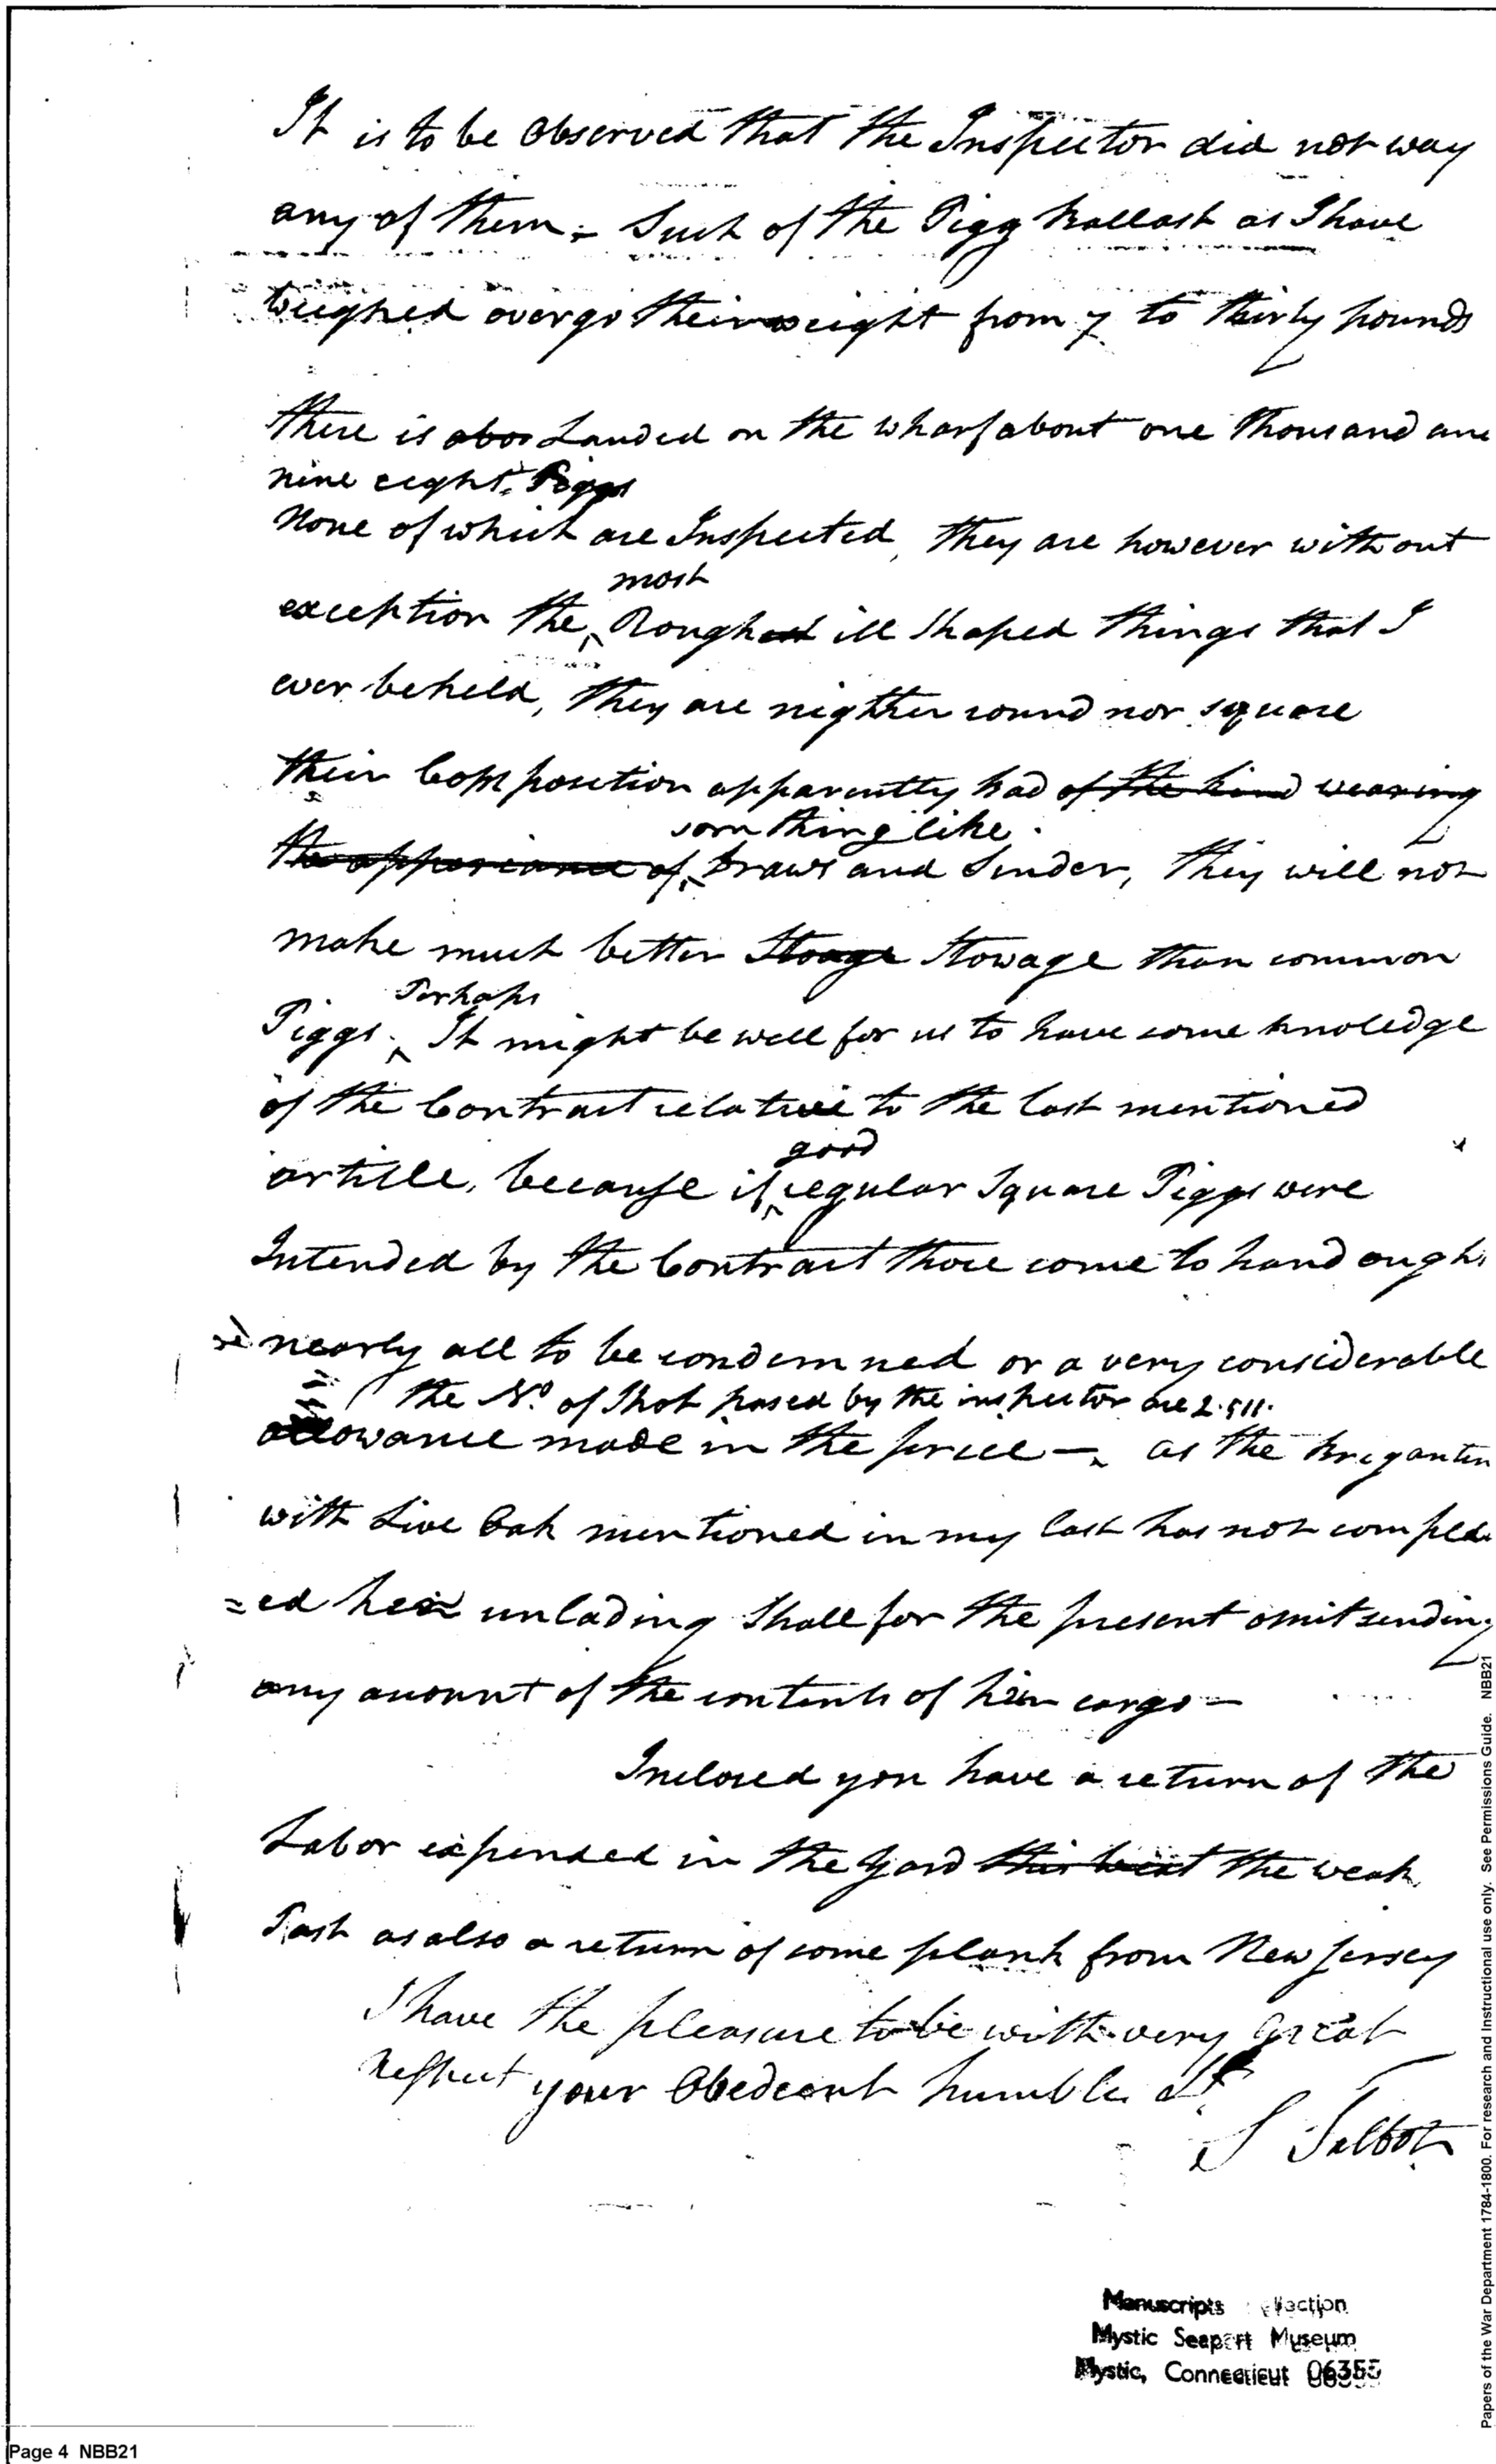 It is to be Observed that the Inspector did not way
any of them - Such of the Pigg ballast as I have
weighed overgo their weight from 7 to thirty pounds
there is abou Landed on the wharf about one thousand and
nine eight Piggs
None of which are Inspected, they are however without
most
exception the Roughest ill Shaped things that I
ever beheld, they are nighther round nor square
their Composition apparently bad of the kind wearing
som thing like
the appearance of, Draws and Sinder, they will not
make much better Stoage Stowage than common
Perhaps
Piggs. It might be well for us to have some knoledge
of the Contract relative to the last mentioned
good
article, because if regular Square Piggs were
Intended by the Contract those come to hand ought
nearly all to be condemned or a very considerable
the No. of Shot passed by the inspector are 2.511.
allowance made in the price — as the Brigantin
with Live Oak mentioned in my last has not complet
=ed her unlading Shall for the present omit sending
any amount of the contents of her cargo —
Inclosed you have a return of the
Labor expended in the Yard this week the weak
Past as also a return of some plank from New Jersey
I have the pleasure to be with very great
Respect your Obedient humble St.
S Talbot
Manuscripts Collection
Mystic Seaport Museum
Mystic, Connecticut 06355
Page 4 NBB21
Papers of the War Department 1784-1800. For research and Instructional use only. See Permissions Guide. NBB21